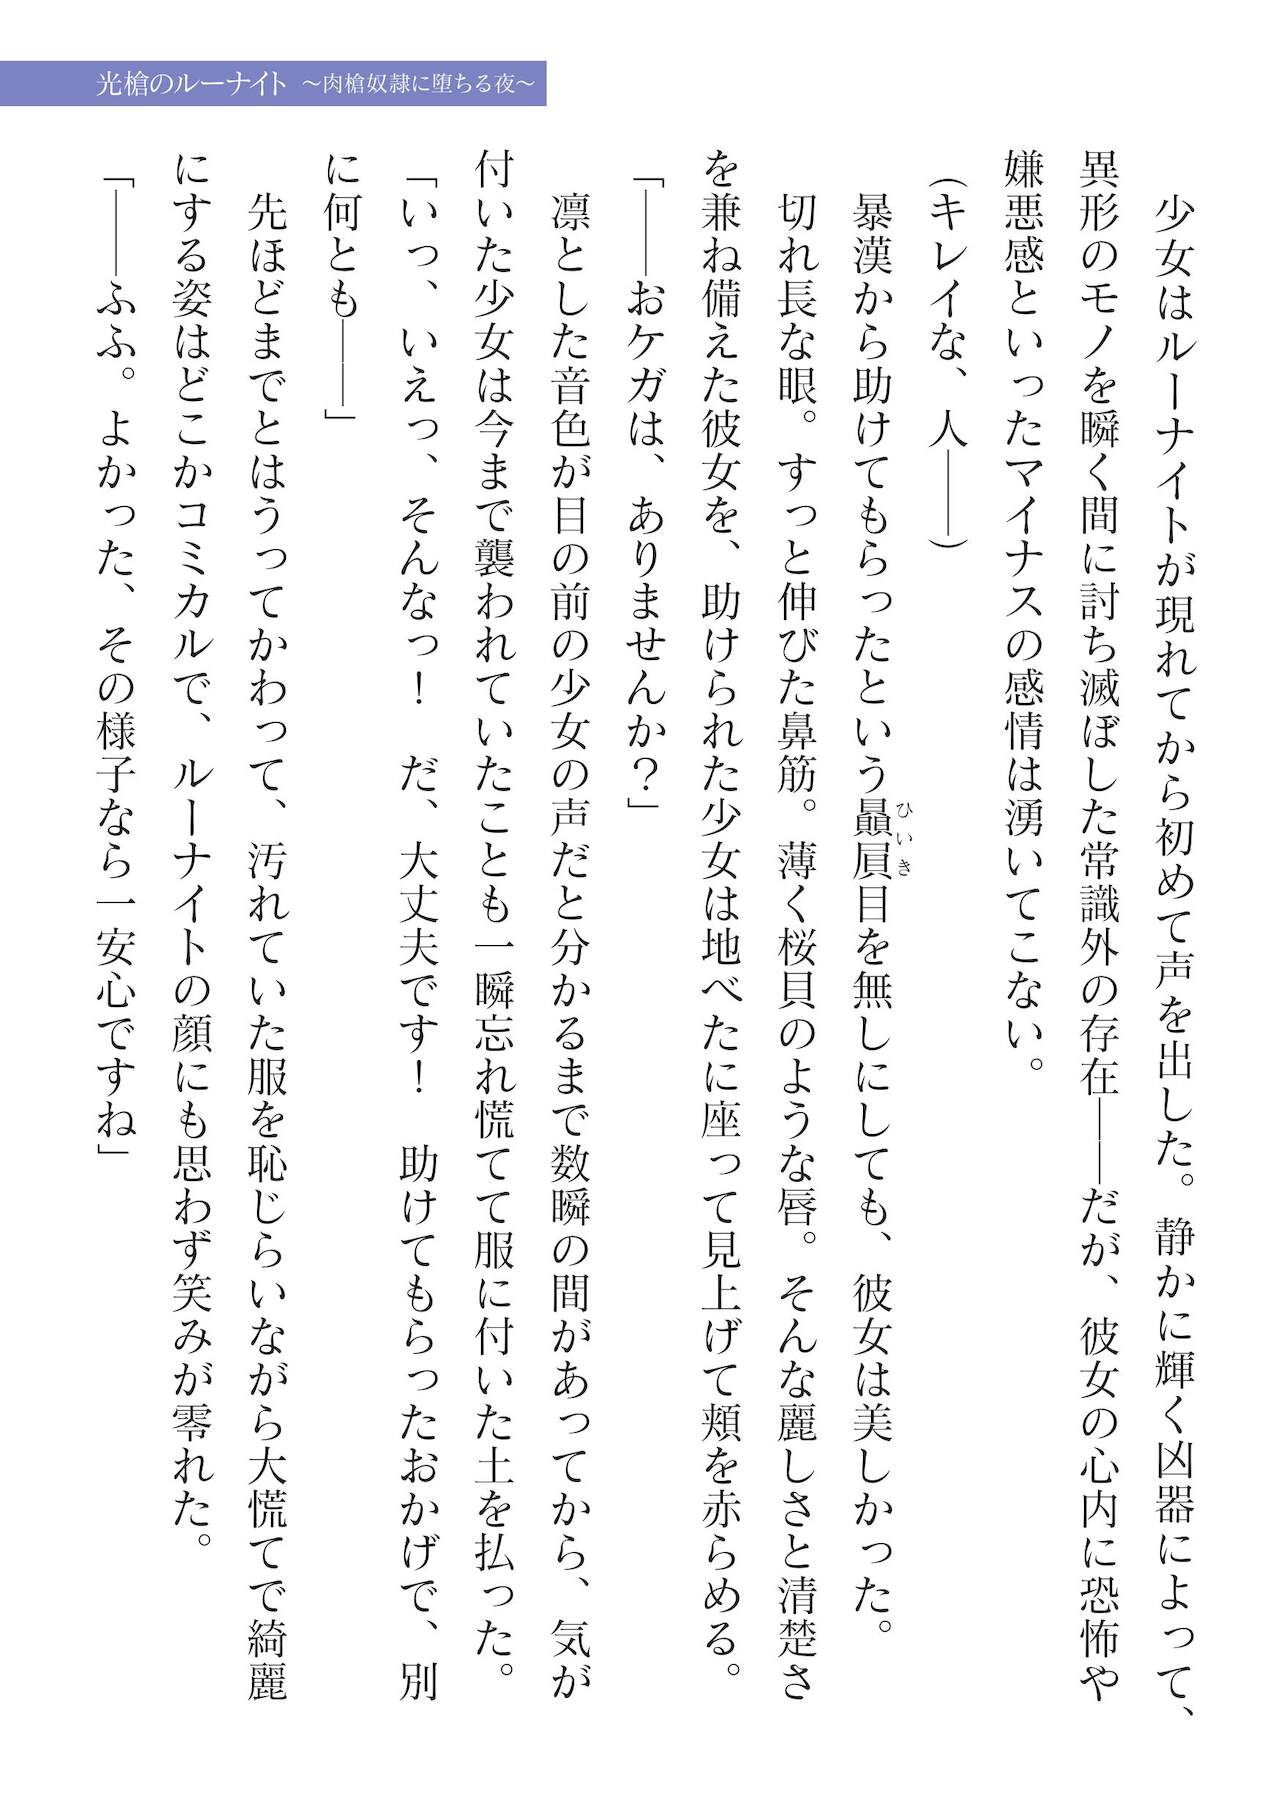 光槍のルーナイト ～肉槍奴隷に堕ちる夜～
少女はルーナイトが現れてから初めて声を出した。静かに輝く凶器によって、
異形のモノを瞬く間に討ち滅ぼした常識外の存在――だが、彼女の心内に恐怖や
嫌悪感といったマイナスの感情は湧いてこない。
（キレイな、人――）
暴漢から助けてもらったという贔屓目を無しにしても、彼女は美しかった。
ひいき
切れ長な眼。すっと伸びた鼻筋。薄く桜貝のような唇。そんな麗しさと清楚さ
を兼ね備えた彼女を、助けられた少女は地べたに座って見上げて頬を赤らめる。
「――おケガは、ありませんか？」
凛とした音色が目の前の少女の声だと分かるまで数瞬の間があってから、気が
付いた少女は今まで襲われていたことも一瞬忘れ慌てて服に付いた土を払った。
「いっ、いえっ、そんなっ！　だ、大丈夫です！　助けてもらったおかげで、別
に何とも――」
先ほどまでとはうってかわって、汚れていた服を恥じらいながら大慌てで綺麗
にする姿はどこかコミカルで、ルーナイトの顔にも思わず笑みが零れた。
「――ふふ。よかった、その様子なら一安心ですね」